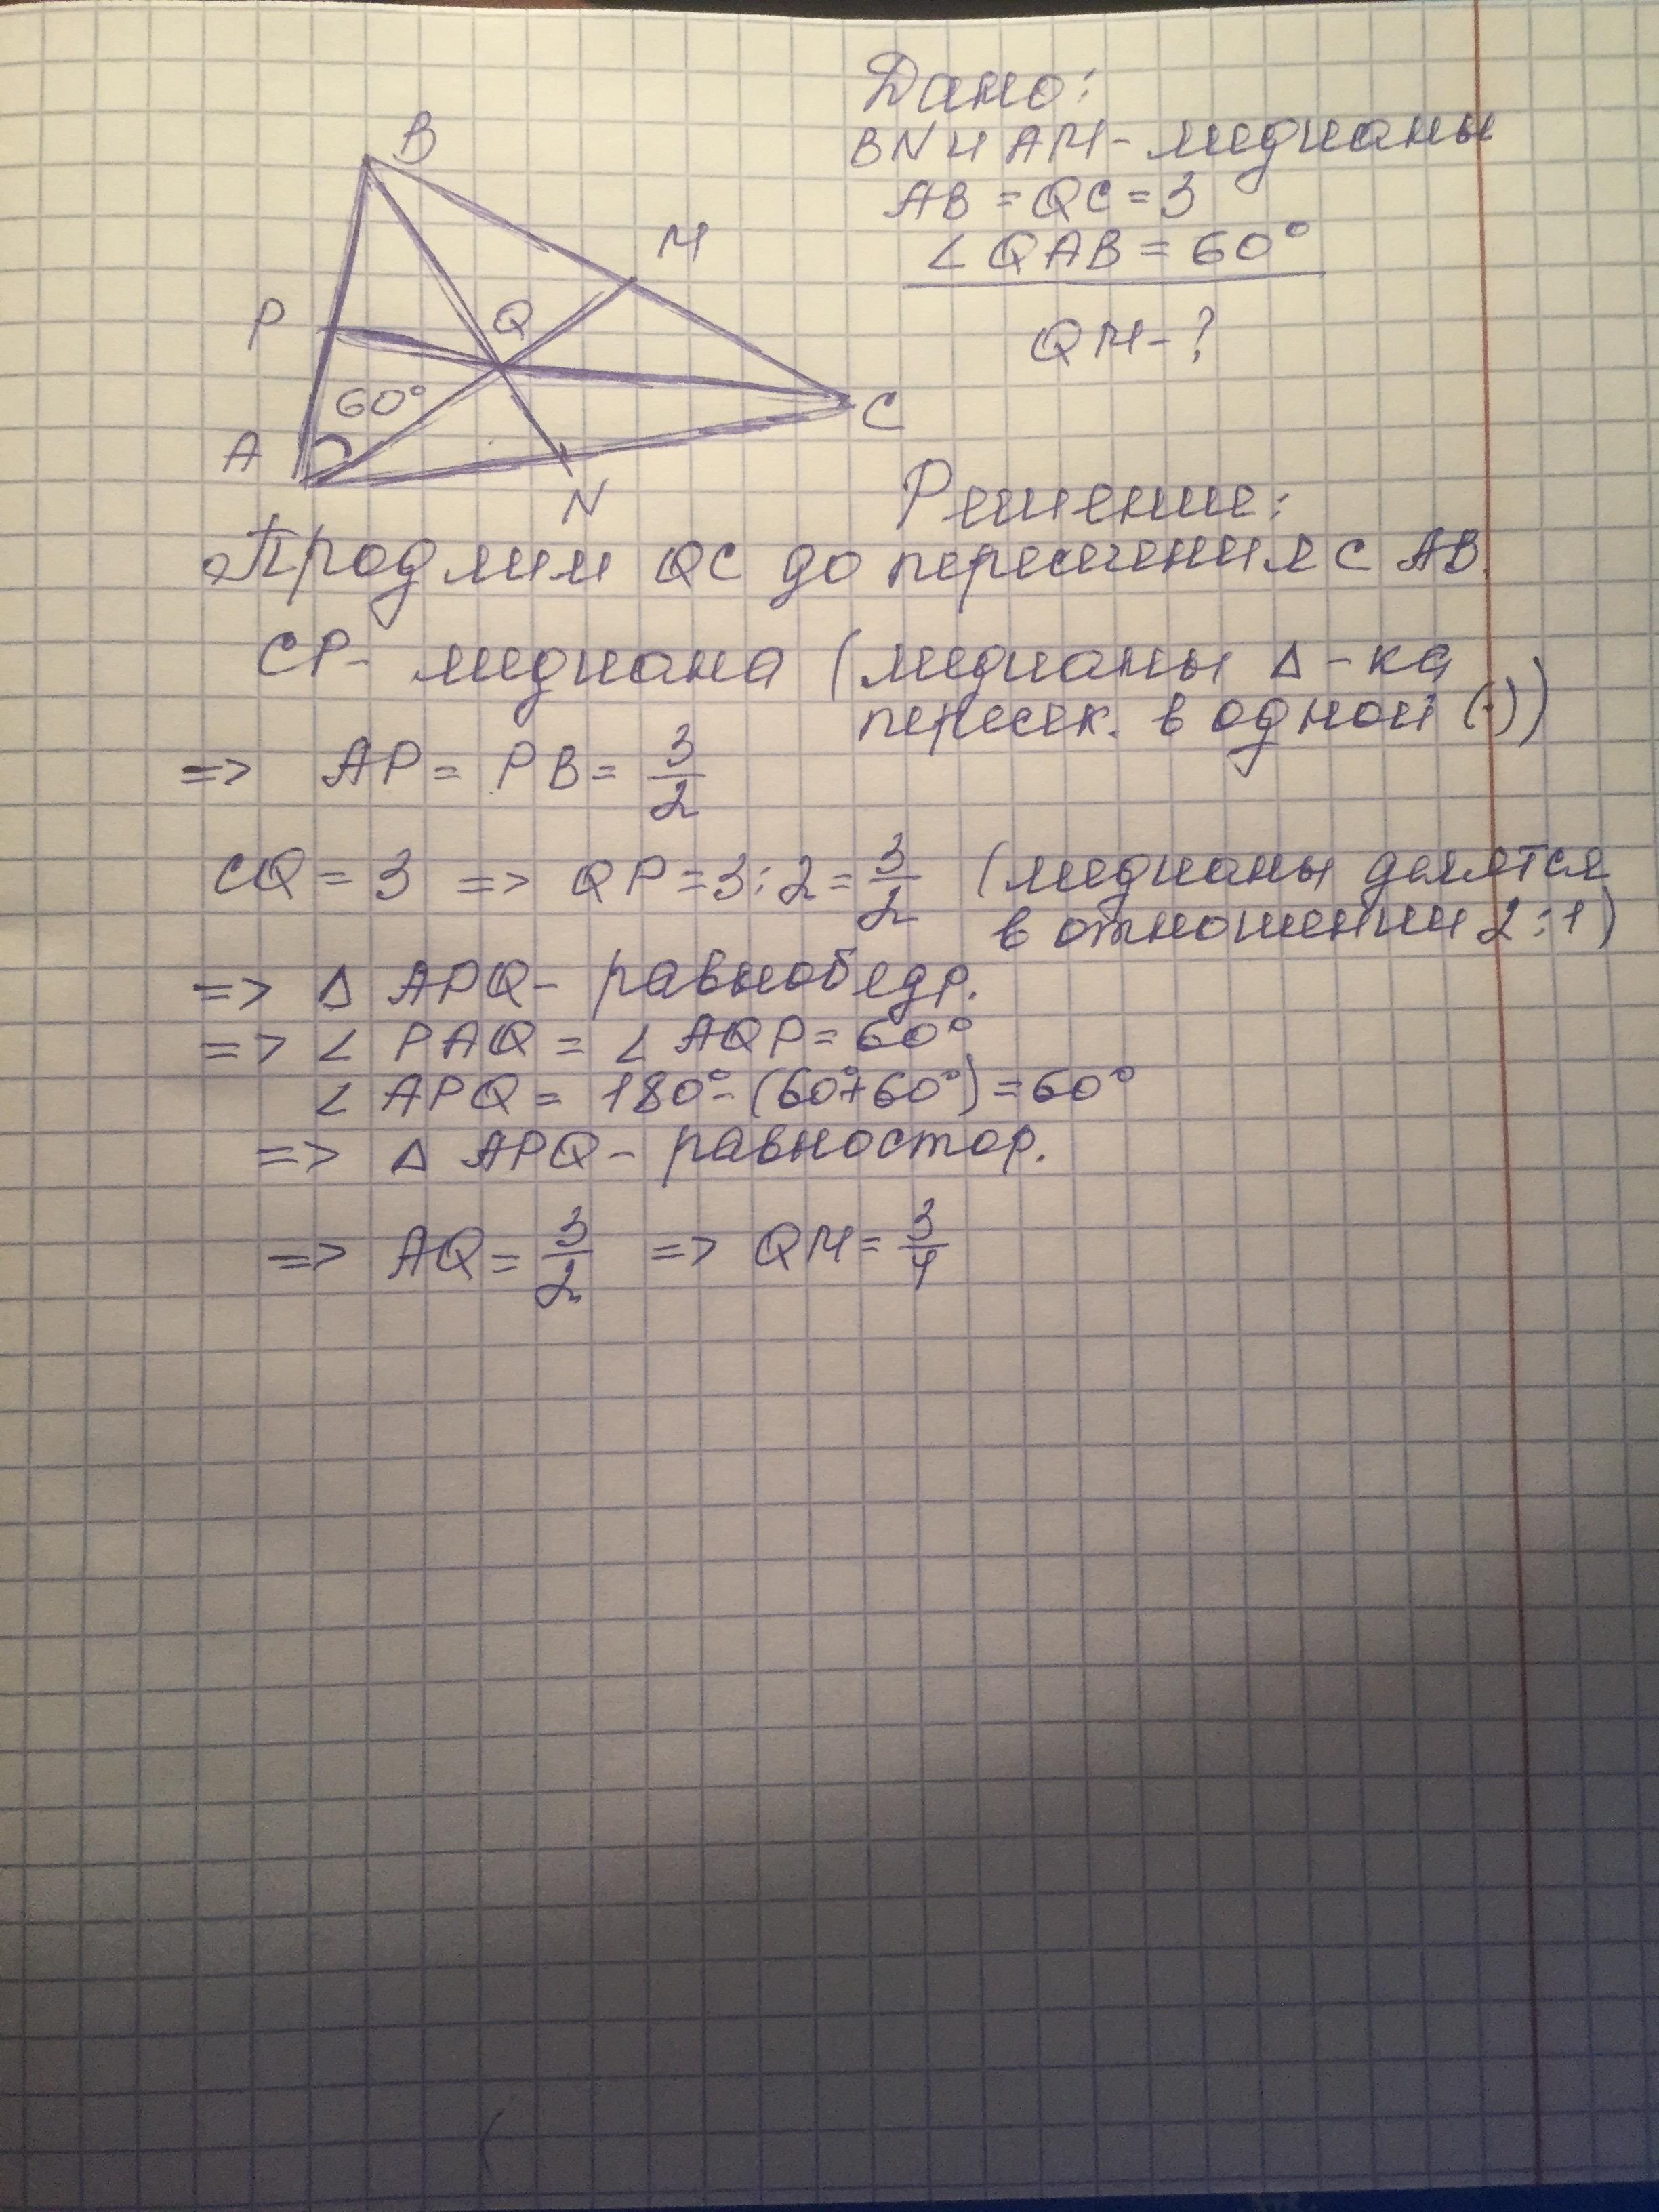 Дано:
BN и AM - медианы
AB = QC = 3
∠QAB = 60°
QM - ?
B
M
P
Q
60°
C
A
N
Решение:
Продлим QC до пересечения с AB.
CP - медиана (медианы Δ-ка
пересек. в одной (·))
=> AP = PB = 3/2
CQ = 3 => QP = 3:2 = 3/2 (медианы делятся
в отношении 2:1)
=> Δ APQ - равнобедр.
=> ∠ PAQ = ∠ AQP = 60°
∠ APQ = 180° - (60°+60°) = 60°
=> Δ APQ - равностор.
=> AQ = 3/2 => QM = 3/4